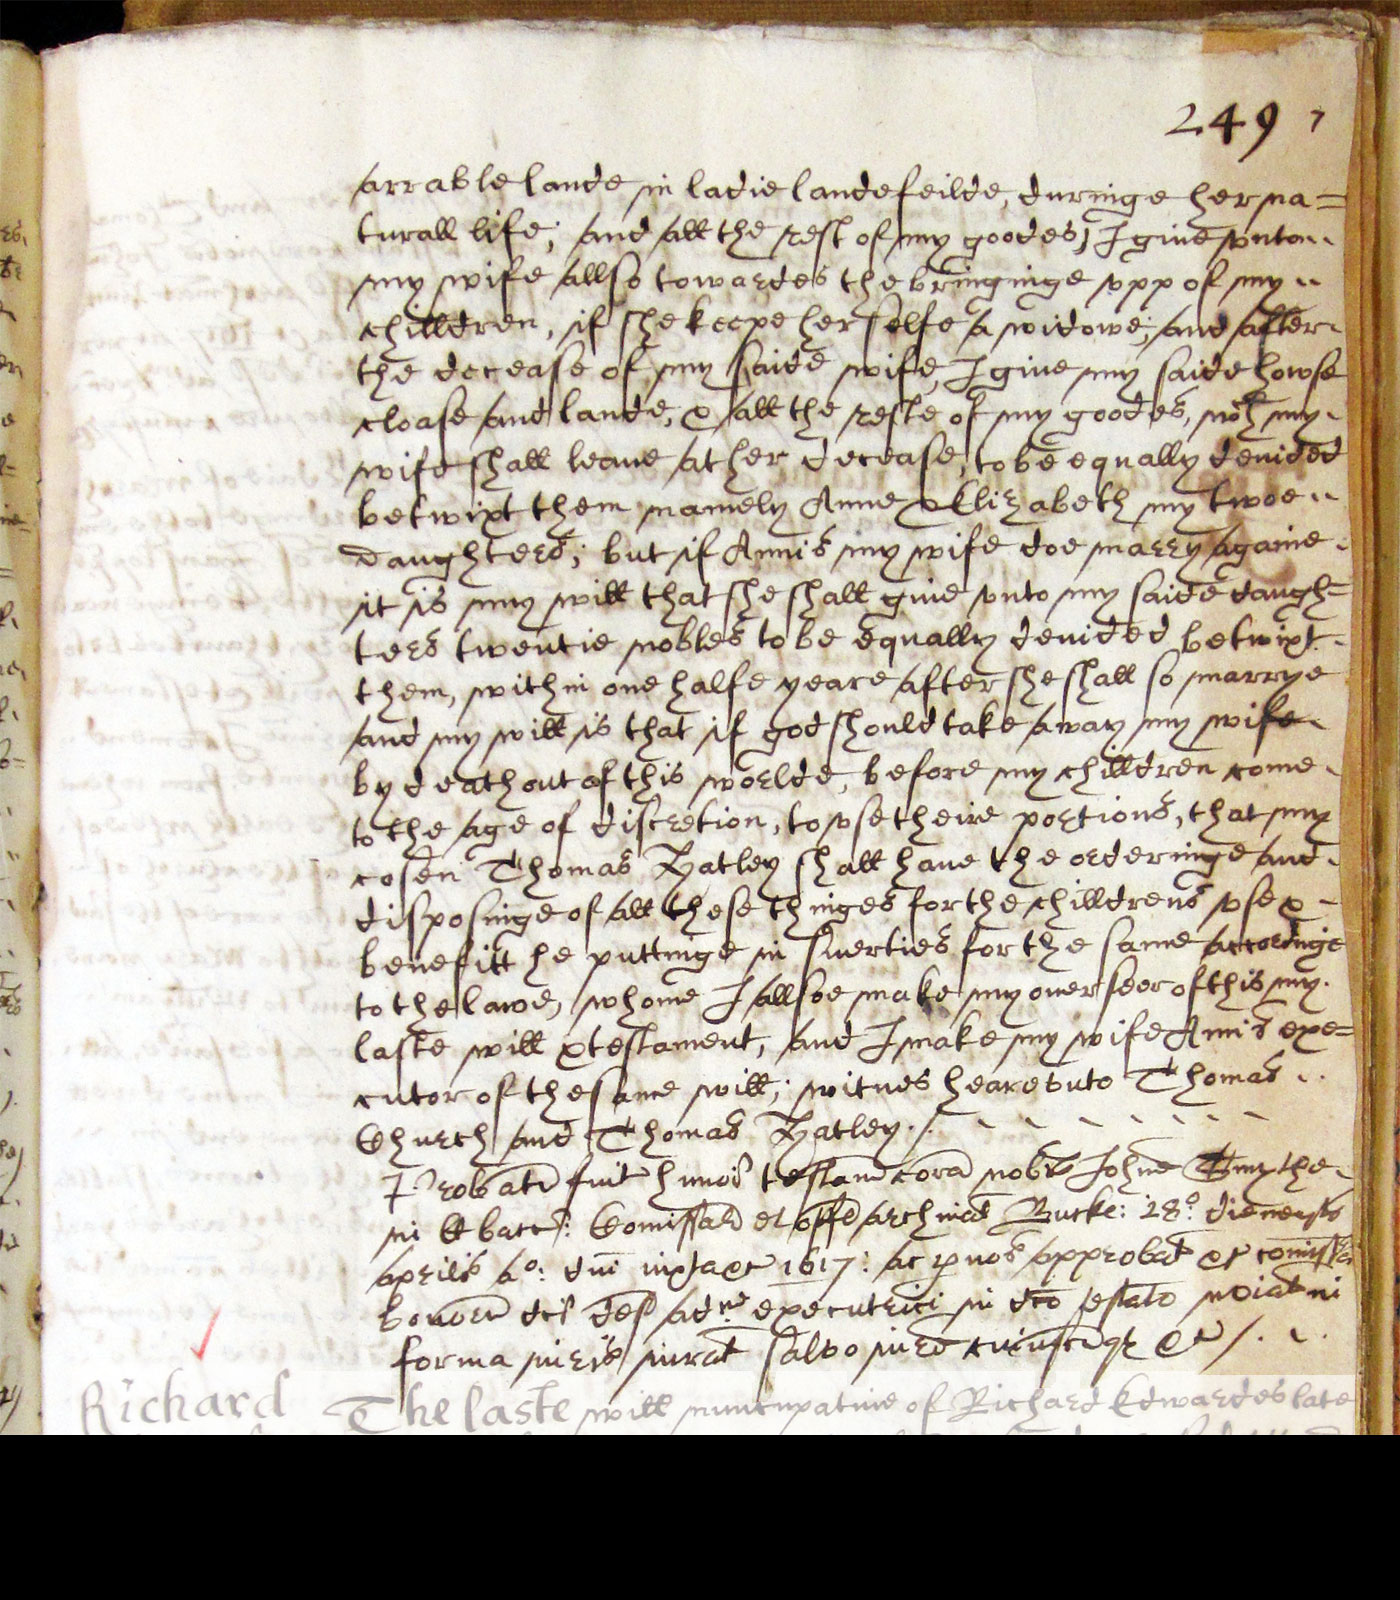 249 7
arrable lande in ladie landefeilde, duringe her na=
turall life; and all the rest of my goodes, I give vnto
my wife allso towardes the bringinge vpp of my
chilldren, if she keepe her selfe a widowe; and after
the decease of my saide wife, I giue my saide howse
cloase and lande, & all the reste of my goodes, wch my
wife shall leaue at her decease, to be equally deuided
betwixt them namely Anne & Elizabeth my twoe
daughters; but if Annis my wife doe marry againe
it is my will that she shall giue vnto my saide daugh=
ters twentie nobles to be equally deuided betwixt
them, within one halfe yeare after she shall so marrye
and my will is that if god should take away my wife
by death out of this worlde, before my chilldren come
to the age of discretion, to vse theire portions, that my
cosen Thomas Hatley shall haue the orderinge and
disposinge of all these thinges for the chilldrens vse &
benefitt he puttinge in suerties for the same accordinge
to the lawe, whome I allsoe make my ouerseer of this my
laste will & testament, and I make my wife Annis exe=
cutor of the same will; witnes hearevnto Thomas
Church and Thomas Hatley ./
Probatū fuit humoi testam corā nobis Johne
in ll bacc: Comissar et offi archinat Bucke: 28o die mensis
Aprilis Ao: dni iuxta &c 1617: ac p nos approbat et comissa
bonorū dci def adnē executrici in dco testato noiat in
forma iuris iurat salvo iure cuiuscūqz &c /.
Richard The laste will nuncupatiue of Richard Edwardes late